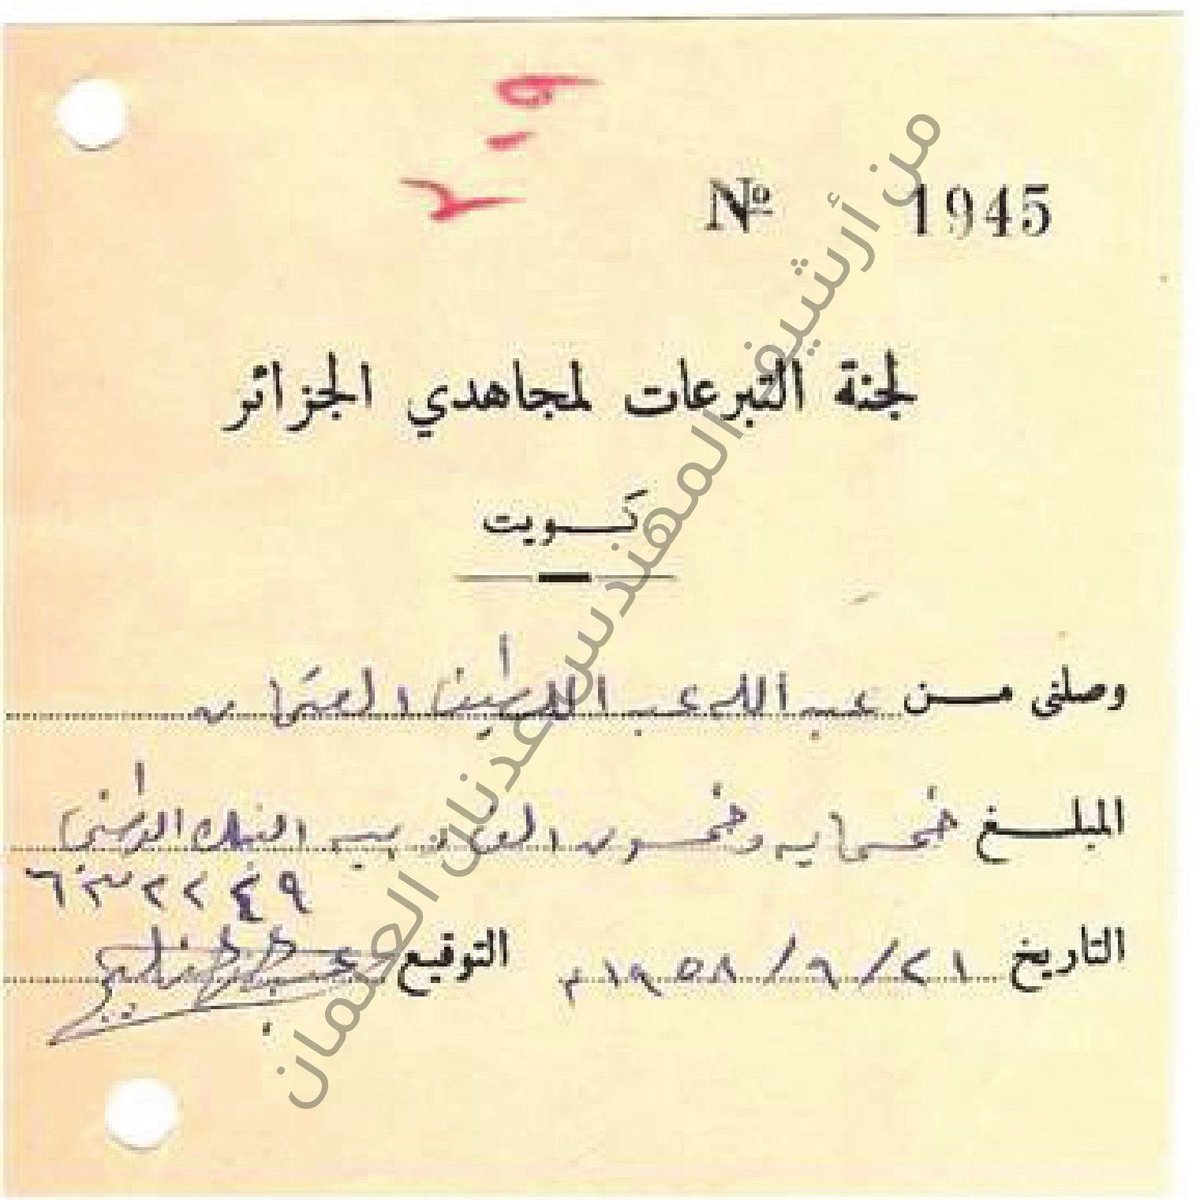 ٩-٢
Nº 1945
لجنة التبرعات لمجاهدي الجزائر
كويت
وصلني من عبد الله عبد اللطيف العثمان
المبلغ خمسمايه وخمسون الف البنك الوطني
٦٣٢٢٤٩
التاريخ ٢١/٩/١٩٥٨م التوقيع
من أرشيف المهندس عدنان العثمان